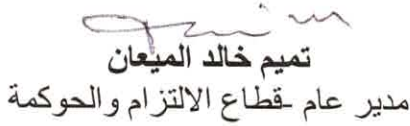 تميم خالد الميعان
مدير عام -قطاع الالتزام والحوكمة